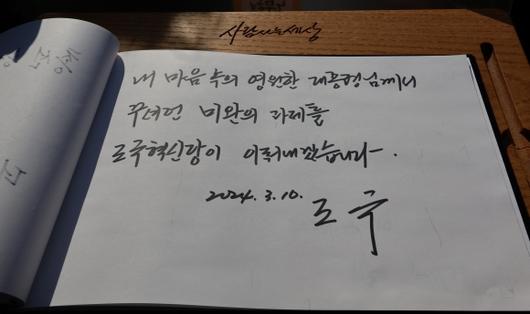 사람사는세상
내 마음 속의 영원한 대통령님께서
미완의 과제를
조국혁신당이 이뤄내겠습니다.
2024. 3. 10. 조 국